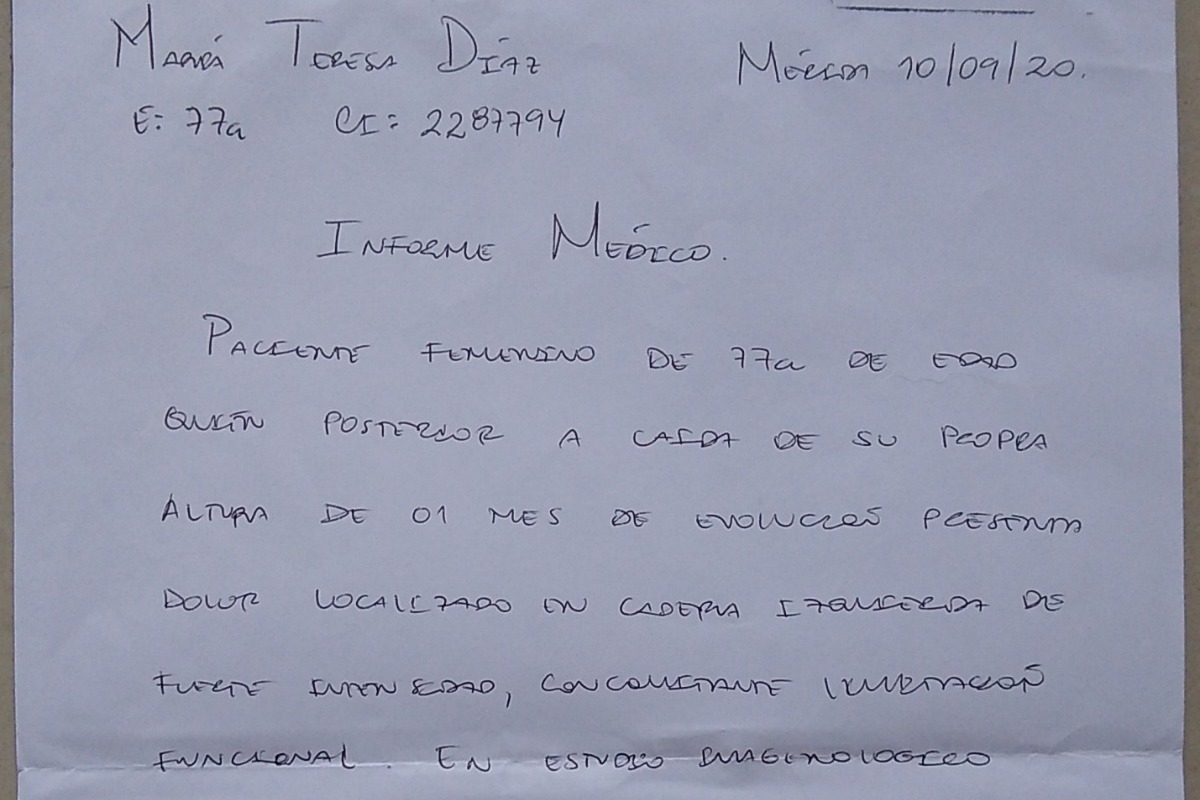 María Teresa Díaz
Mérida 10/09/20.
E: 77a CI: 2287794
Informe Médico.
Paciente femenino de 77a de edad
quién posterior a caida de su propia
altura de 01 mes de evolución presenta
dolor localizado en cadera izquierda de
fuerte intensidad, concomitante limitación
funcional. En estudio imagenologico